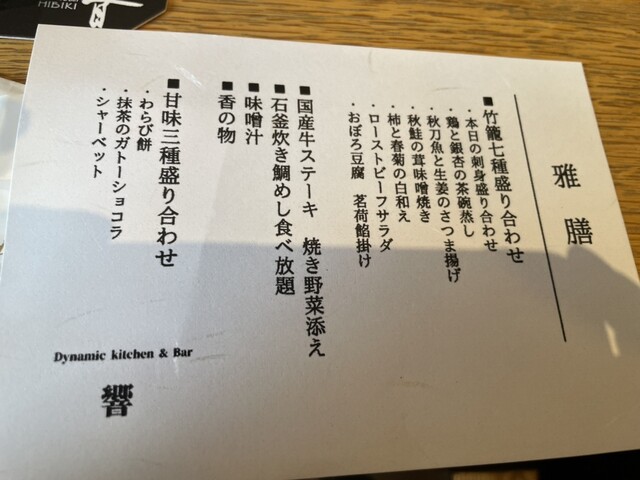 HIBIKI
響
雅膳
■竹籠七種盛り合わせ
・本日の刺身盛り合わせ
・鶏と銀杏の茶碗蒸し
・秋刀魚と生姜のさつま揚げ
・秋鮭の茸味噌焼き
・柿と春菊の白和え
・ローストビーフサラダ
・おぼろ豆腐 茗荷餡掛け
■国産牛ステーキ 焼き野菜添え
■石釜炊き鯛めし食べ放題
■味噌汁
■香の物
■甘味三種盛り合わせ
・わらび餅
・抹茶のガトーショコラ
・シャーベット
Dynamic kitchen & Bar
響